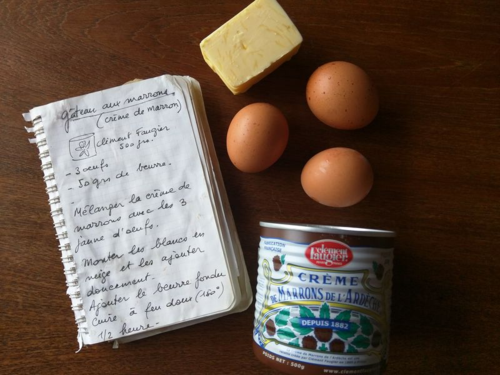 Gâteau aux marrons
(crème de marron)
Clément Faugier
500 grs.
- 3 oeufs
- 50 grs de beurre.
Mélanger la crème de
marrons avec les 3
jaune d'oeufs.
Monter les blancs en
neige et les ajouter
doucement.
Ajouter le beurre fondu
cuire à feu doux (150°)
1/2 heure.
FABRICATION
FRANÇAISE
clement
faugier
CRÈME
DE MARRONS DE L'ARDÈCHE
DEPUIS 1882
POIDS NET : 500g